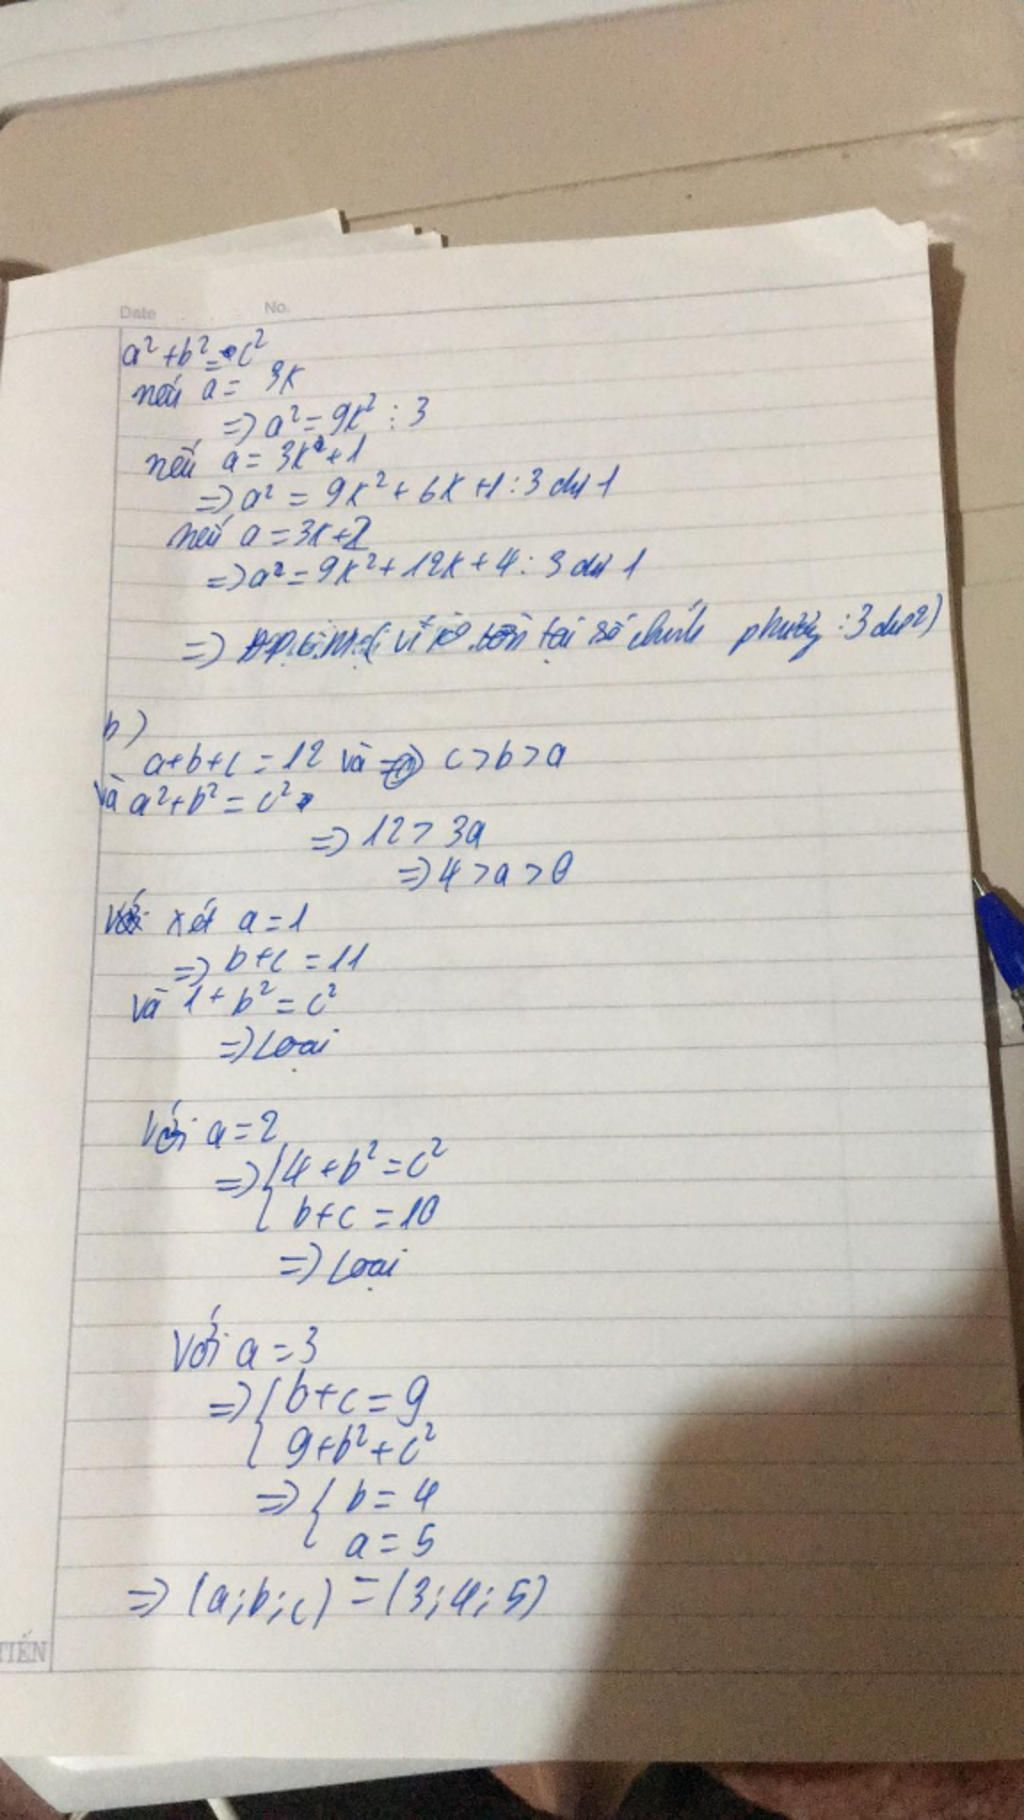 Date No.
a² + b² = c²
nếu a = 3k
=> a² = 9k² : 3
nếu a = 3k + 1
=> a² = 9k² + 6k + 1 : 3 dư 1
nếu a = 3k + 2
=> a² = 9k² + 12k + 4 : 3 dư 1
=> vì ko tồn tại số chính phương : 3 dư 2)
b)
a+b+c = 12 và c > b > a
và a² + b² = c²
=> 12 > 3a
=> 4 > a > 0
xét a = 1
=> b+c = 11
và 1 + b² = c²
=> Loại
Với a = 2
=> { 4 + b² = c²
b+c = 10
=> Loại
Với a = 3
=> { b+c = 9
9+b²+c²
=> { b = 4
a = 5
=> (a;b;c) = (3;4;5)
TIẾN